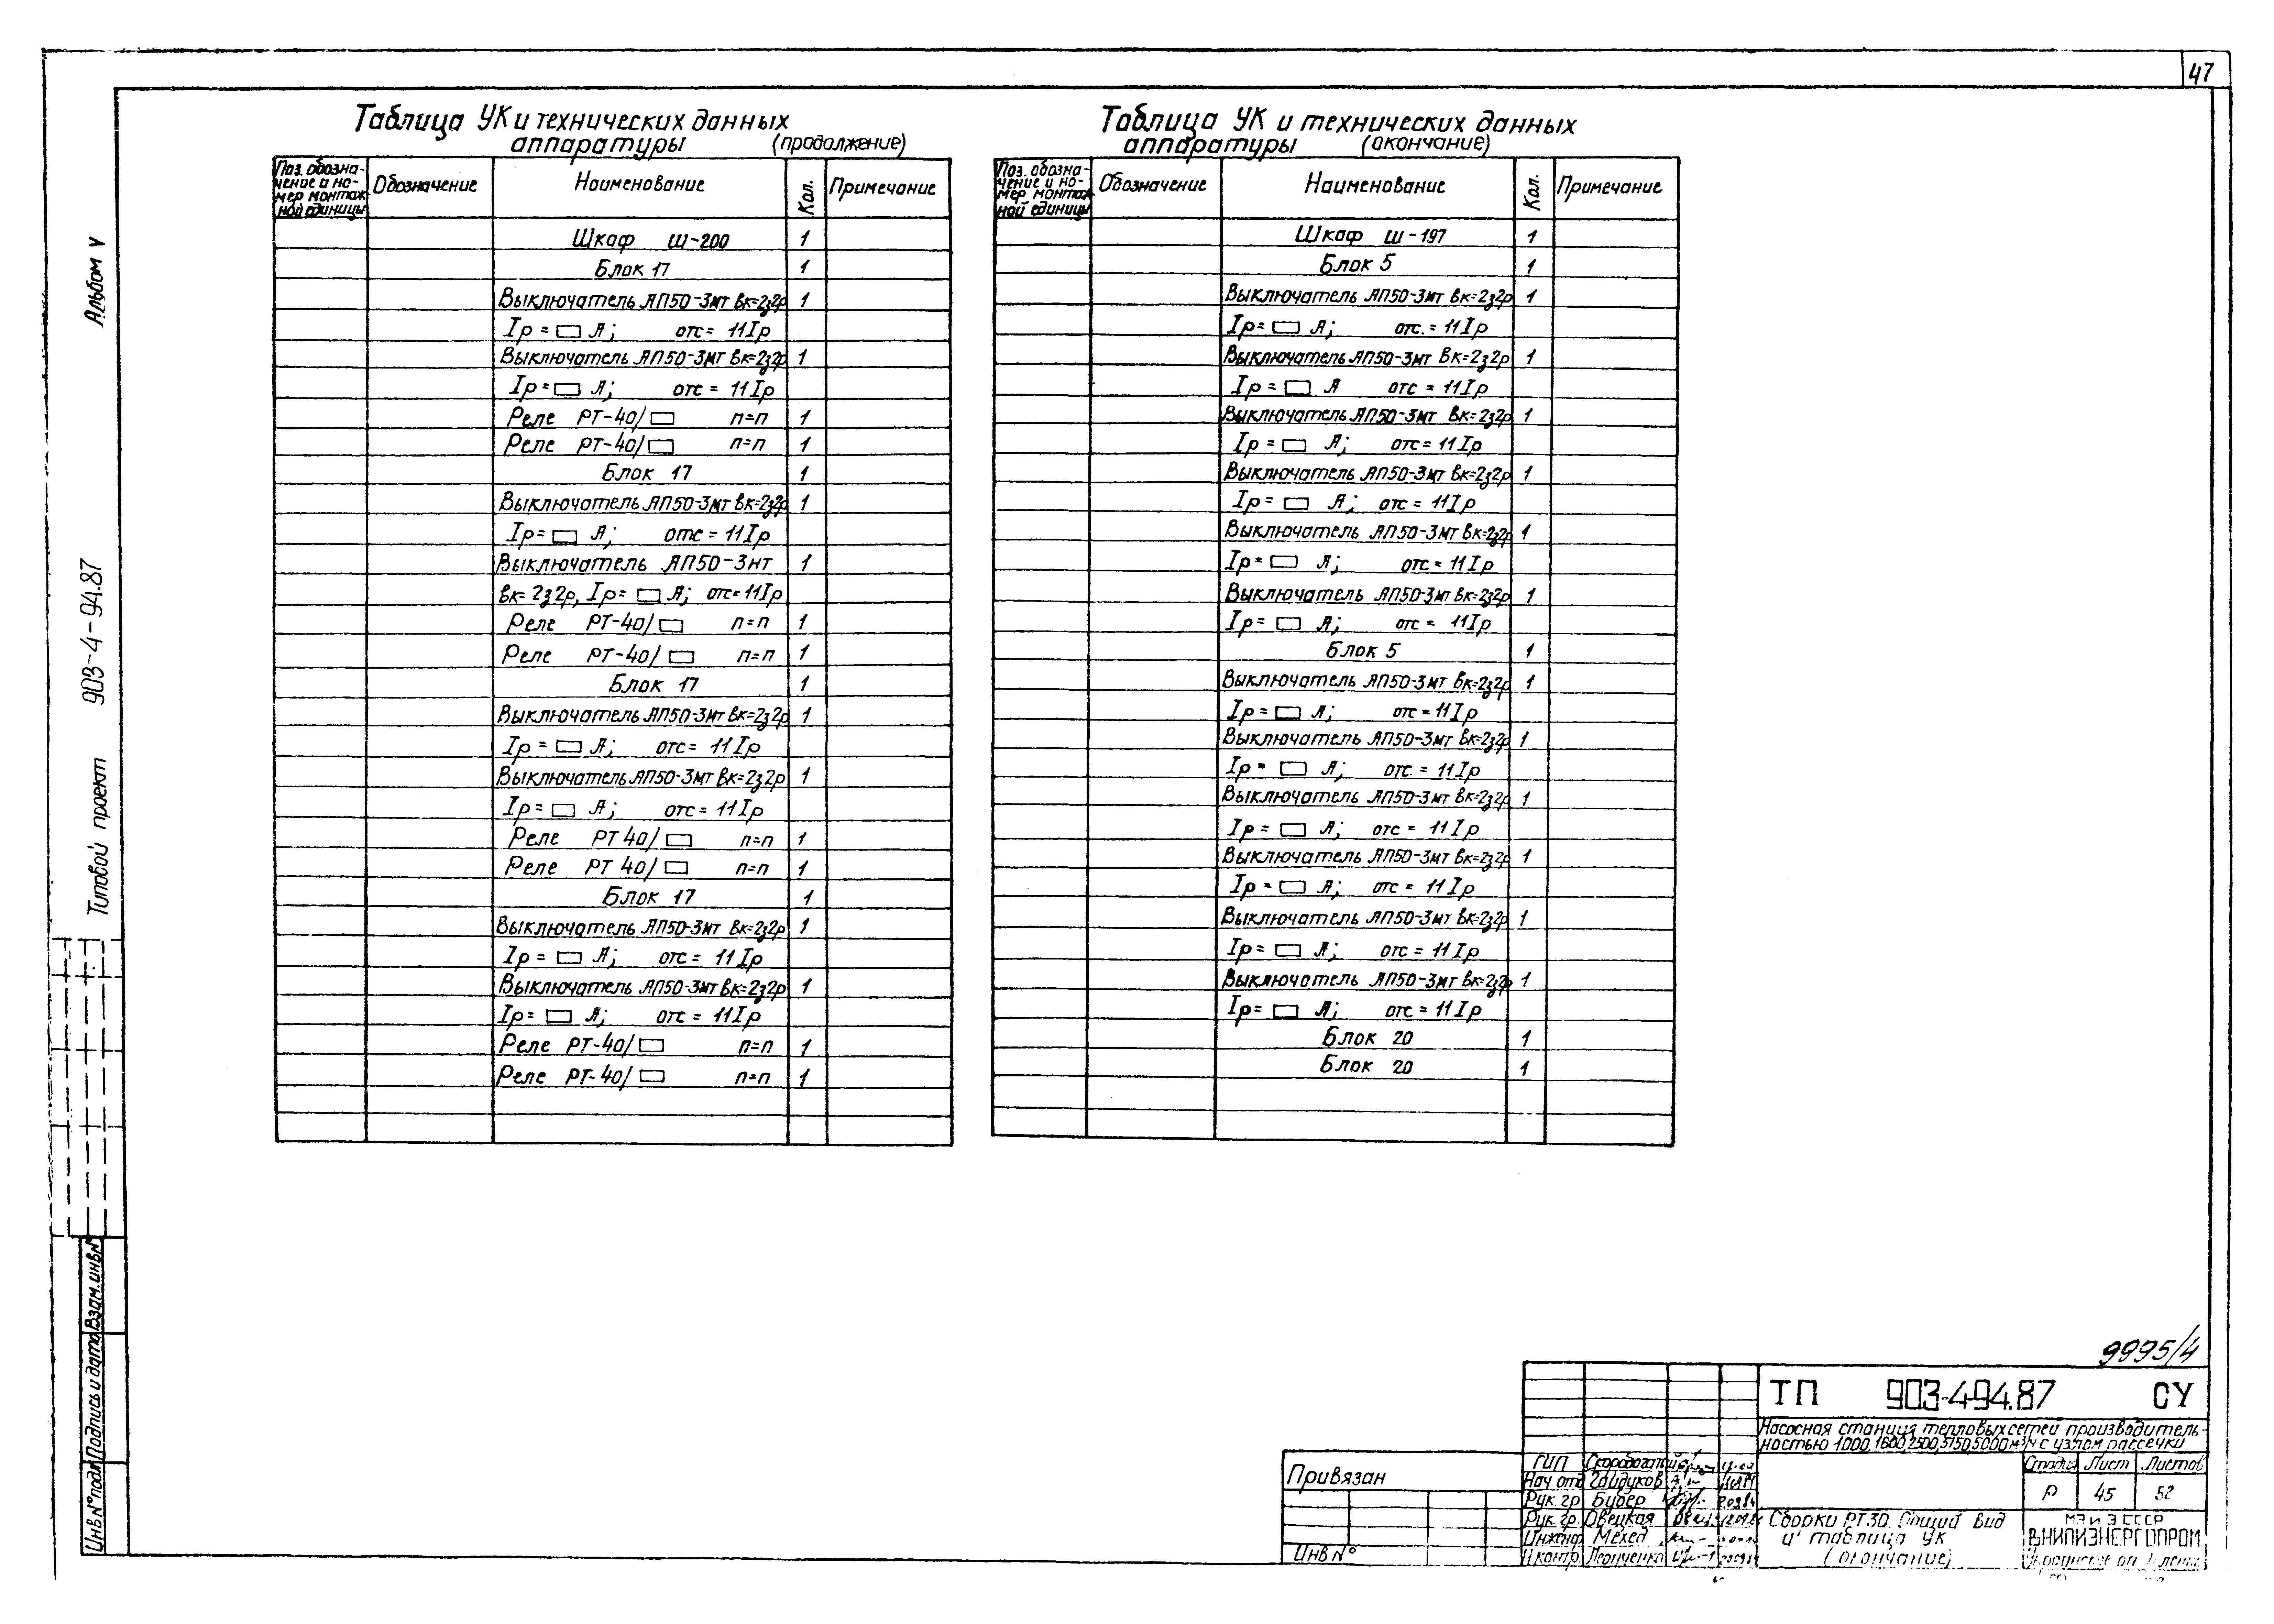 47
Альбом V
Типовой проект 903-4-94.87
Взам. инв №
Подпись и дата
Инв № подл
Таблица УК и технических данных
аппаратуры (продолжение)
Поз. обозна-
чение и но-
мер монтаж
ной единицы
Обозначение
Наименование
Кол.
Примечание
Шкаф Ш-200 1
Блок 17 1
Выключатель АП50-3мт Вк=2з2р 1
Iр = А; отс = 11Iр
Выключатель АП50-3мт Вк=2з2р 1
Iр = А; отс = 11Iр
Реле РТ-40/ п=п 1
Реле РТ-40/ п=п 1
Блок 17 1
Выключатель АП50-3мт Вк=2з2р 1
Iр = А; отс = 11Iр
Выключатель АП50-3мт 1
вк= 2з2р, Iр= А; отс=11Iр
Реле РТ-40/ п=п 1
Реле РТ-40/ п=п 1
Блок 17 1
Выключатель АП50-3мт Вк=2з2р 1
Iр = А; отс = 11Iр
Выключатель АП50-3мт Вк=2з2р 1
Iр = А; отс = 11Iр
Реле РТ 40/ п=п 1
Реле РТ 40/ п=п 1
Блок 17 1
Выключатель АП50-3мт Вк=2з2р 1
Iр = А; отс = 11Iр
Выключатель АП50-3мт Вк=2з2р 1
Iр = А; отс = 11Iр
Реле РТ-40/ п=п 1
Реле РТ-40/ п=п 1
Таблица УК и технических данных
аппаратуры (окончание)
Поз. обозна-
чение и но-
мер монтаж
ной единицы
Обозначение
Наименование
Кол.
Примечание
Шкаф Ш-197 1
Блок 5 1
Выключатель АП50-3мт Вк=2з2р 1
Iр = А; отс. = 11Iр
Выключатель АП50-3мт Вк=2з2р 1
Iр = А отс = 11Iр
Выключатель АП50-3мт Вк=2з2р 1
Iр = А; отс = 11Iр
Выключатель АП50-3мт Вк=2з2р 1
Iр = А; отс = 11Iр
Выключатель АП50-3мт Вк=2з2р 1
Iр = А; отс = 11Iр
Выключатель АП50-3мт Вк=2з2р 1
Iр = А; отс = 11Iр
Блок 5 1
Выключатель АП50-3мт Вк=2з2р 1
Iр = А; отс = 11Iр
Выключатель АП50-3мт Вк=2з2р 1
Iр = А; отс. = 11Iр
Выключатель АП50-3мт Вк=2з2р 1
Iр = А; отс = 11Iр
Выключатель АП50-3мт Вк=2з2р 1
Iр = А; отс = 11Iр
Выключатель АП50-3мт Вк=2з2р 1
Iр = А; отс = 11Iр
Выключатель АП50-3мт Вк=2з2р 1
Iр = А; отс = 11Iр
Блок 20 1
Блок 20 1
9995/4
ТП 903-4-94.87 СУ
Насосная станция тепловых сетей производитель-
ностью 1000, 1600, 2500, 3750, 5000 м³/ч с узлом рассечки
Привязан
Инв №
ГИП
Нач отд Гайдуков
Рук. гр. Бубер
Рук. гр. Овецкая
Инжен. Мехед
Н контр Леонченко
Стадия Лист Листов
Р 45 52
Сборки РТ30. Общий вид
и таблица УК
(окончание)
МЭ и Э СССР
ВНИПИЭНЕРГОПРОМ